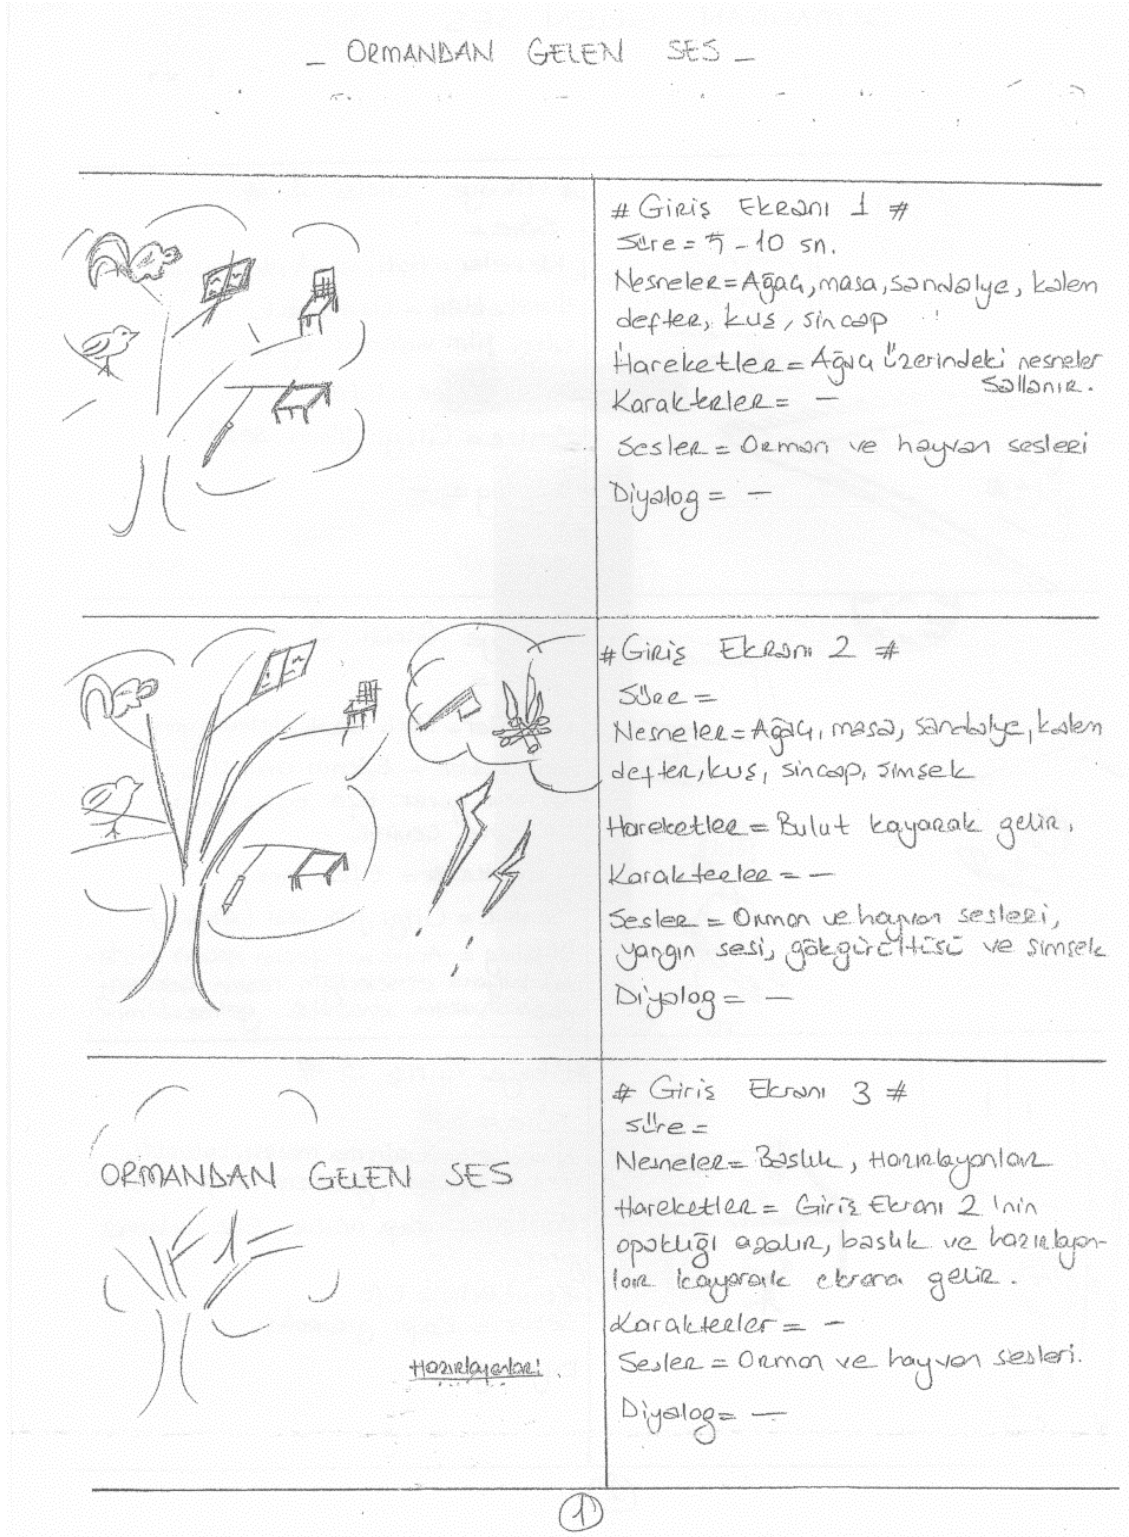 - ORMANDAN GELEN SES -
# Giriş Ekranı 1 #
Süre = 5 - 10 sn.
Nesneler = Ağaç, masa, sandalye, kalem
defter, kuş, sincap
Hareketler = Ağaç üzerindeki nesneler
sallanır.
Karakterler = -
Sesler = Orman ve hayvan sesleri
Diyalog = -
# Giriş Ekranı 2 #
Süre =
Nesneler = Ağaç, masa, sandalye, kalem
defter, kuş, sincap, simsek
Hareketler = Bulut kayarak gelir.
Karakterler = -
Sesler = Orman ve hayvan sesleri,
yangın sesi, gökgürültüsü ve simsek
Diyalog = -
ORMANDAN GELEN SES
Hazırlayanlar:
# Giriş Ekranı 3 #
Süre =
Nesneler = Baslık, Hazırlayanlar
Hareketler = Giriş Ekranı 2'nin
opaklığı azalır, baslık ve hazırlayan-
lar kayarak ekrana gelir.
Karakterler = -
Sesler = Orman ve hayvan sesleri.
Diyalog = -
1